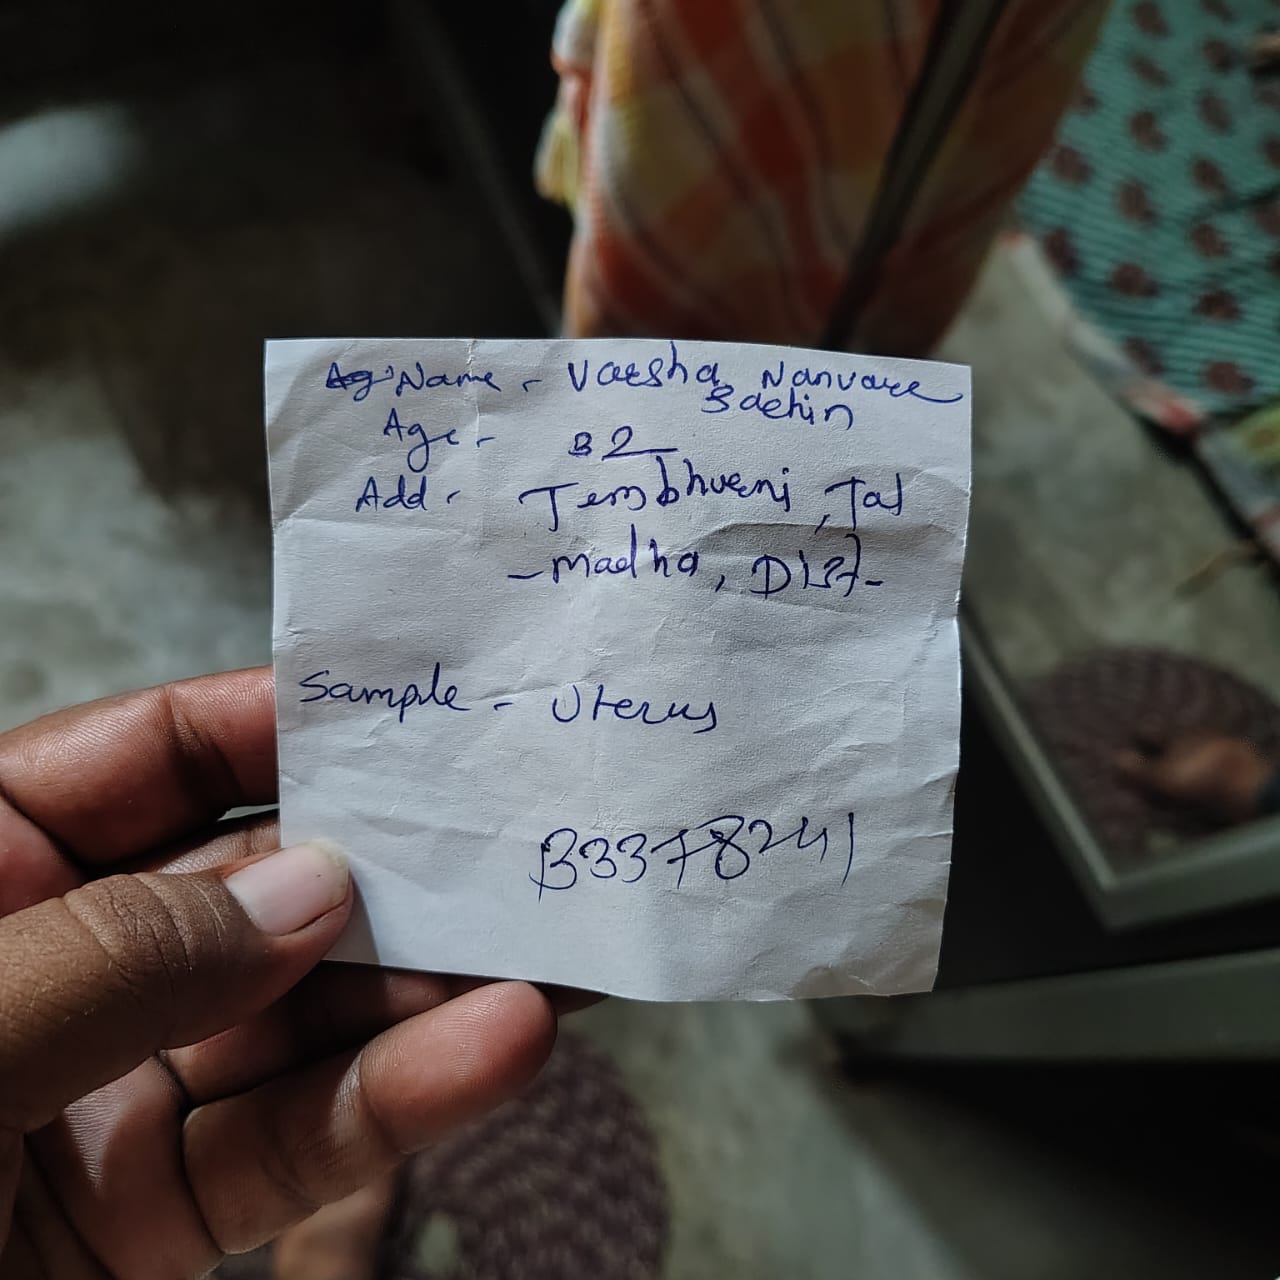 Name - Varsha Nanvare
Sachin
Age - 32
Add - Tembhurni, Tal
- madha, Dist -
Sample - Uterus
B3378241